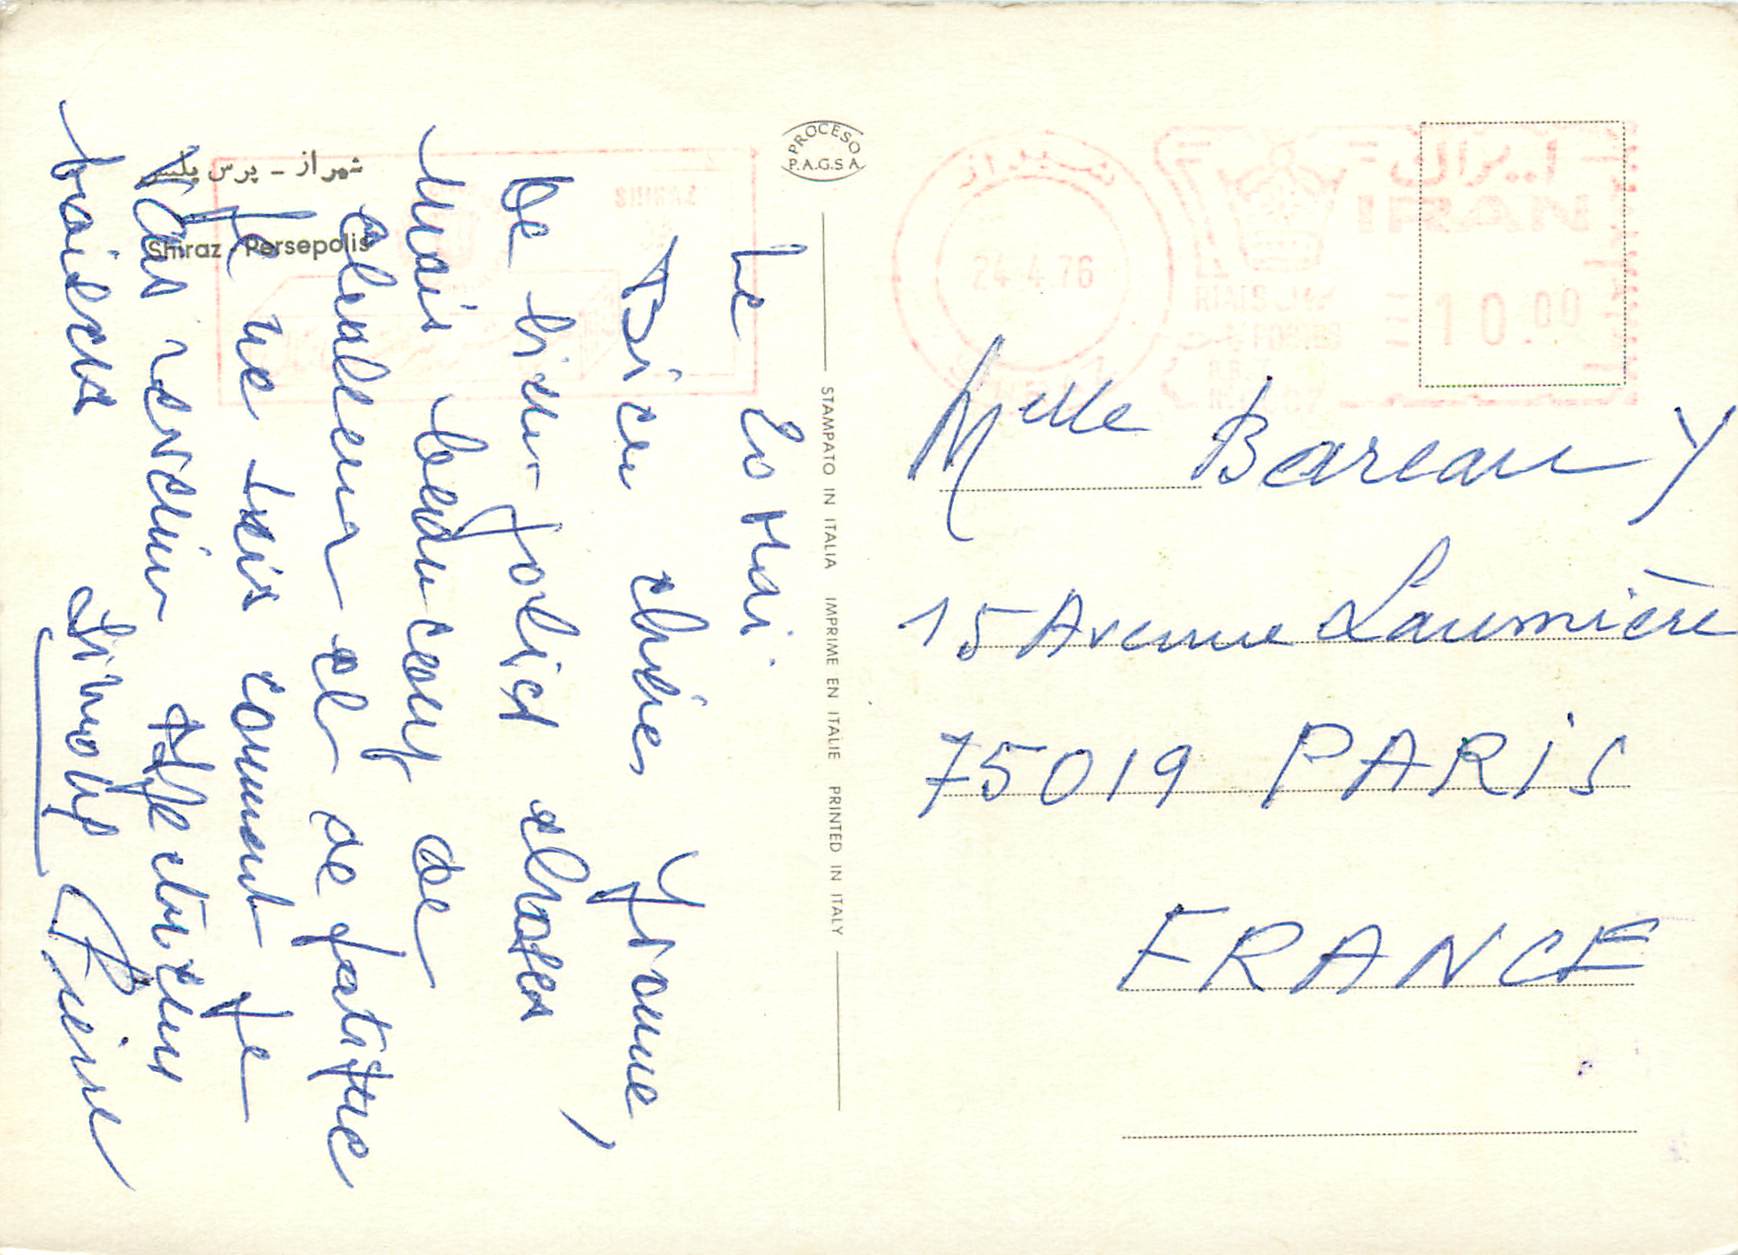 شیراز - پرس پلیس
Shiraz - Persepolis
Le 20 Mai
Bien chère Yvonne,
De bien jolies choses
Mais beaucoup de
chaleur et de fatigue
Je ne sais comment je
vais revenir Affectueux
baisers Simone Pierre
PROCESO
P.A.G.S.A.
STAMPATO IN ITALIA IMPRIME EN ITALIE PRINTED IN ITALY
شیراز
24.4.76
ایران
IRAN
RIALS
10.00
Melle Bareau Y
15 Avenue Laumière
75019 PARIS
FRANCE